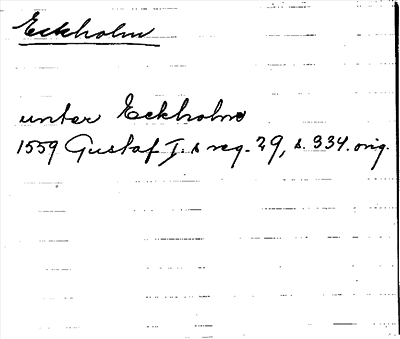 Eckholm
unter Eckholm
1559 Gustaf I:s reg. 29, s. 334. orig.